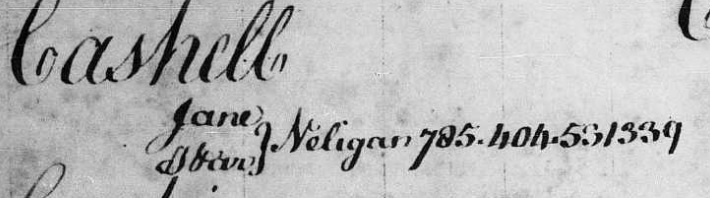 Cashell
Jane } Neligan 785.404.531339